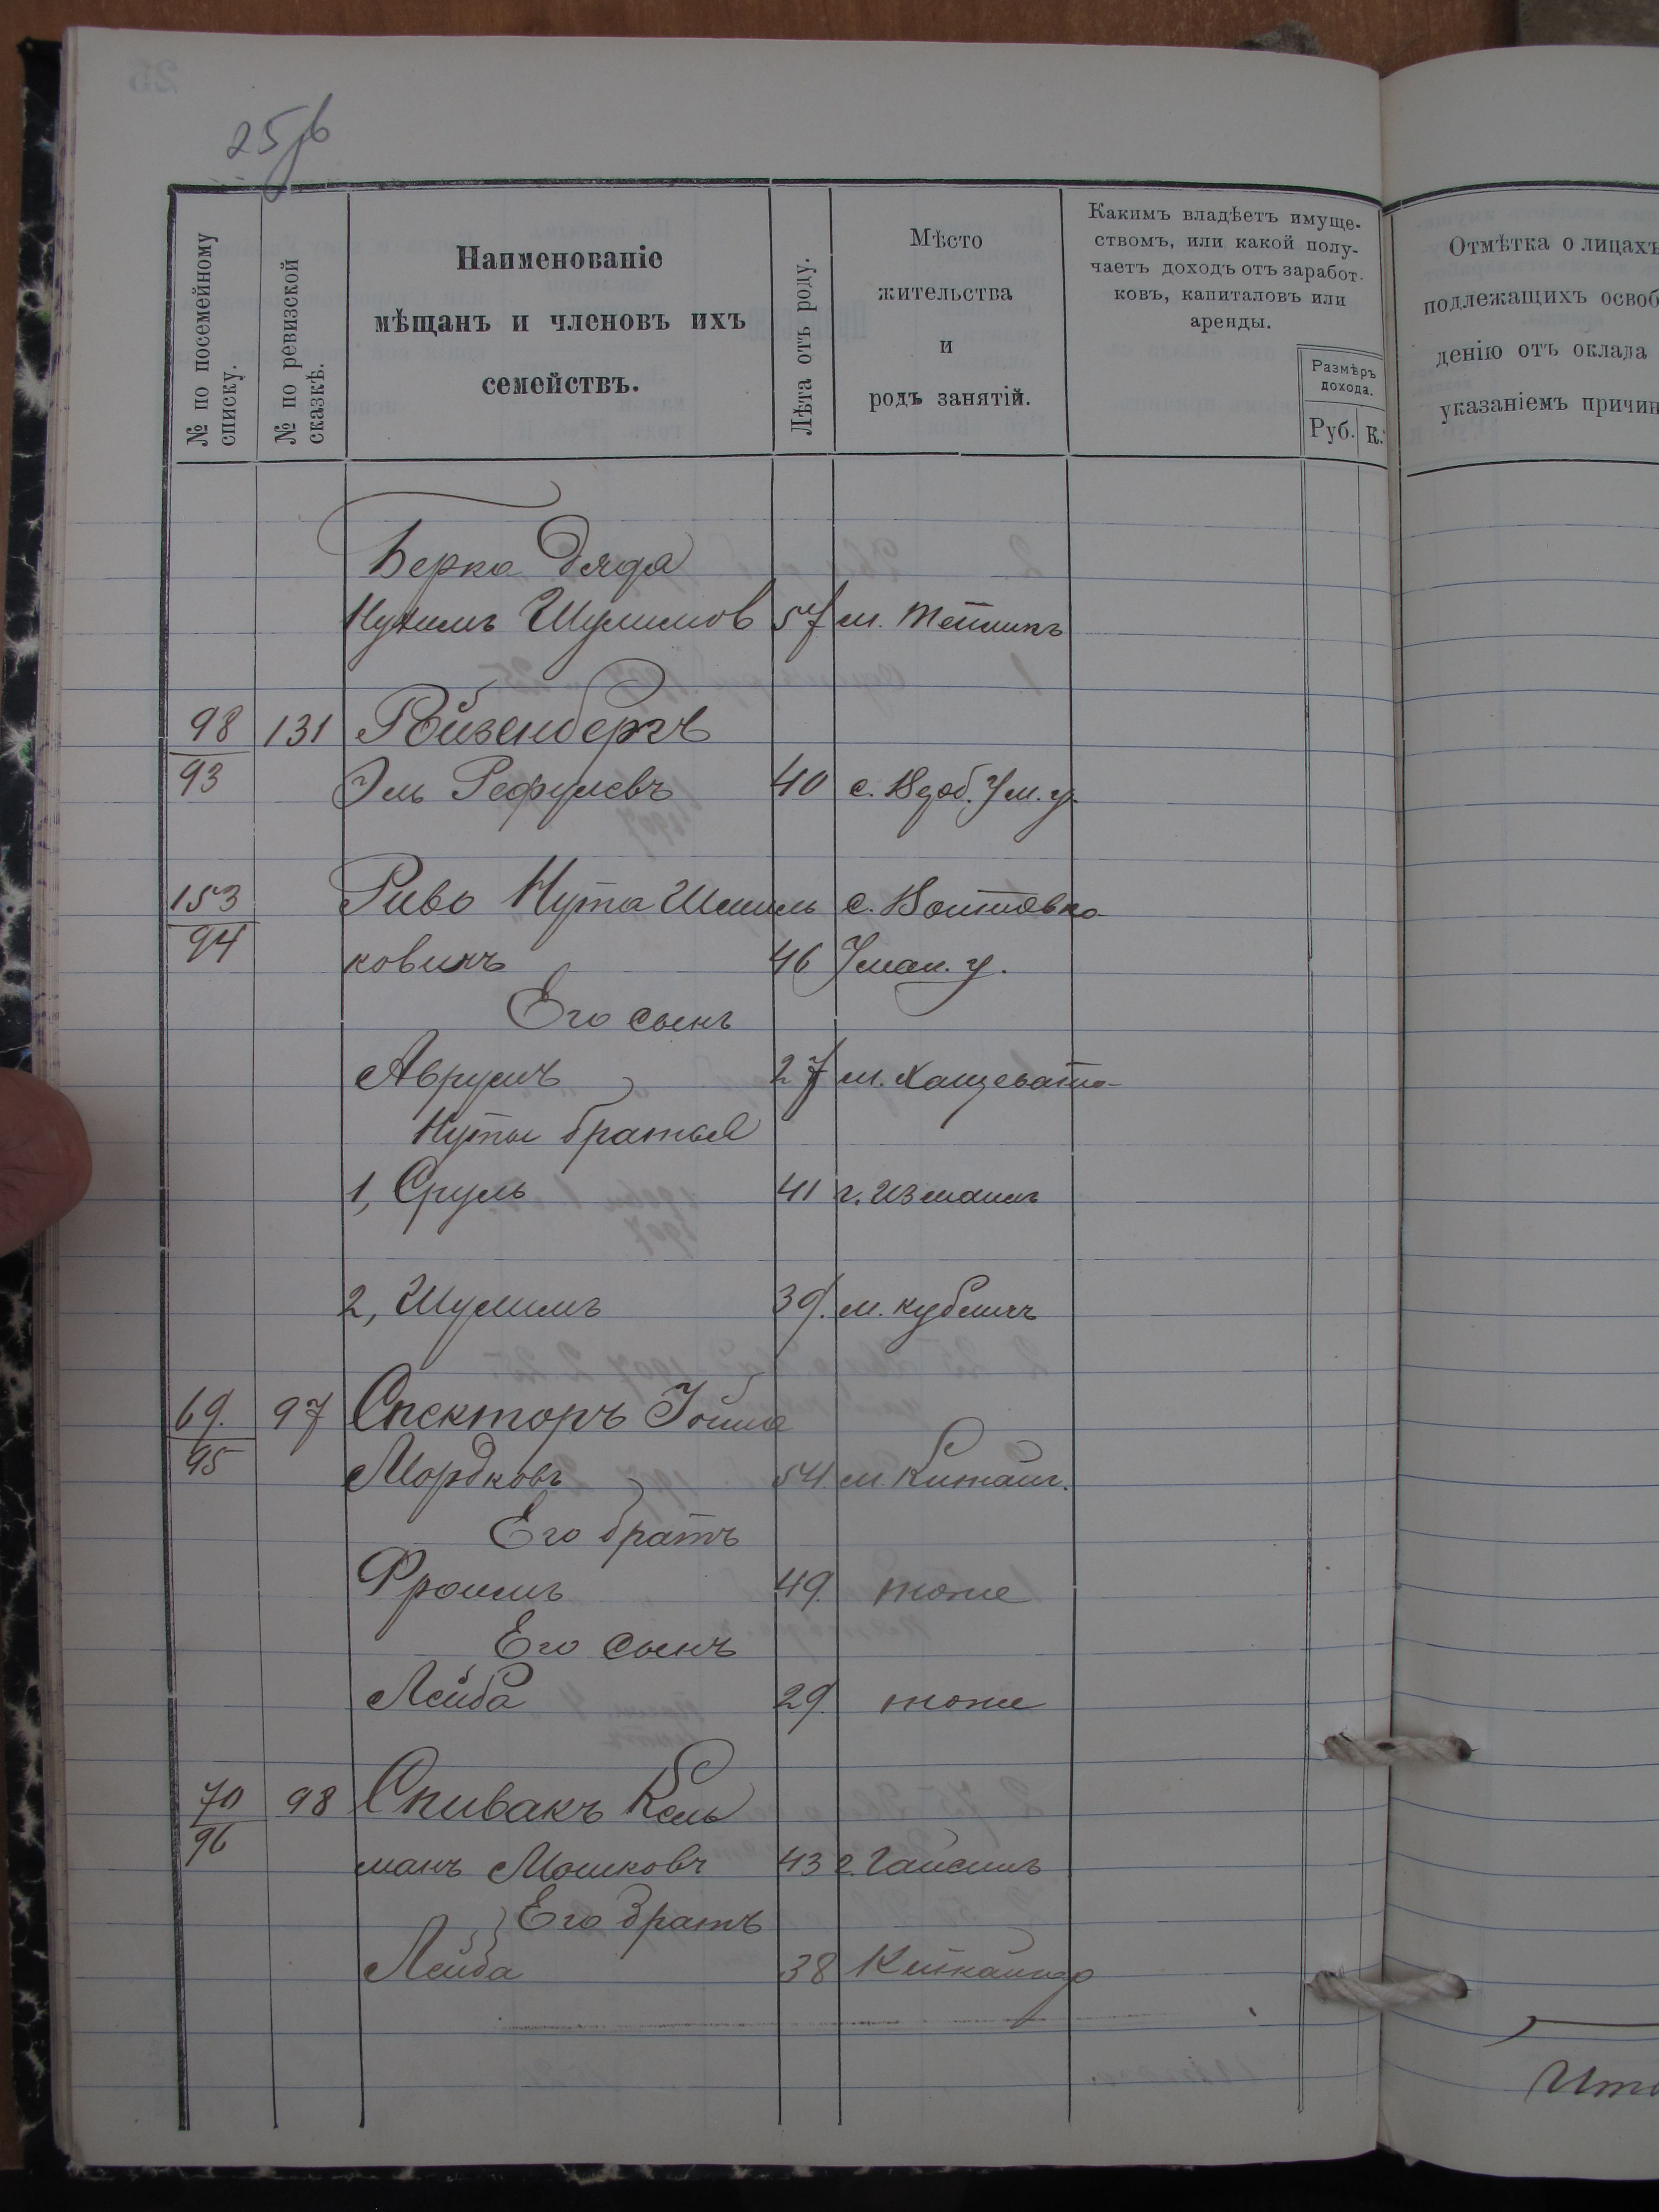 25
№ по посемейному списку.
№ по ревизской сказкѣ.
Наименованіе
мѣщанъ и членовъ ихъ
семействъ.
Лѣта отъ роду.
Мѣсто
жительства
и
родъ занятій.
Какимъ владѣетъ имуще-
ствомъ, или какой полу-
чаетъ доходъ отъ заработ-
ковъ, капиталовъ или
аренды.
Размѣръ
дохода.
Руб. К.
Отмѣтка о лицахъ
подлежащихъ освоб
денію отъ оклада
указаніемъ причин
Берка дядя
Нухимъ Шулимов 57 м. Тепликъ
98 131 Ройзенбергъ
93 Эль Рефулевъ 40 с. Ум. у.
153 Риво Нута Шмиль с. Войтовка
94 ковичъ 46 Уман. у.
Его сынъ
Аврумъ 27 м. Хащевато
Нуты братья
1, Сруль 41 г. Измаилъ
2, Шулимъ 39. м. Кубличъ
69. 97 Спекторъ Іойна
95 Мордковъ 54. м. Китайг.
Его братъ
Фроимъ 49. тоже
Его сынъ
Лейба 29. тоже
70 98 Спивакъ Кель
96 манъ Мошковъ 43 г. Гайсинъ
Его братъ
Лейба 38 Китайгор
Ито